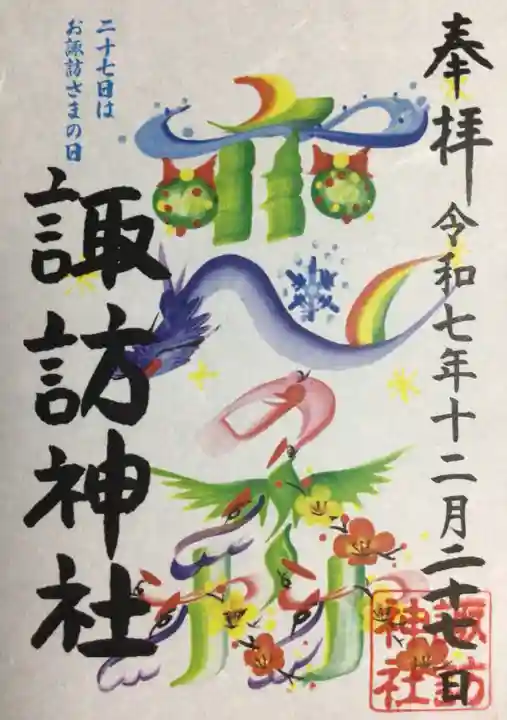 奉拝 令和七年十二月二十七日
二十七日は
お諏訪さまの日
諏訪神社
諏訪
神社